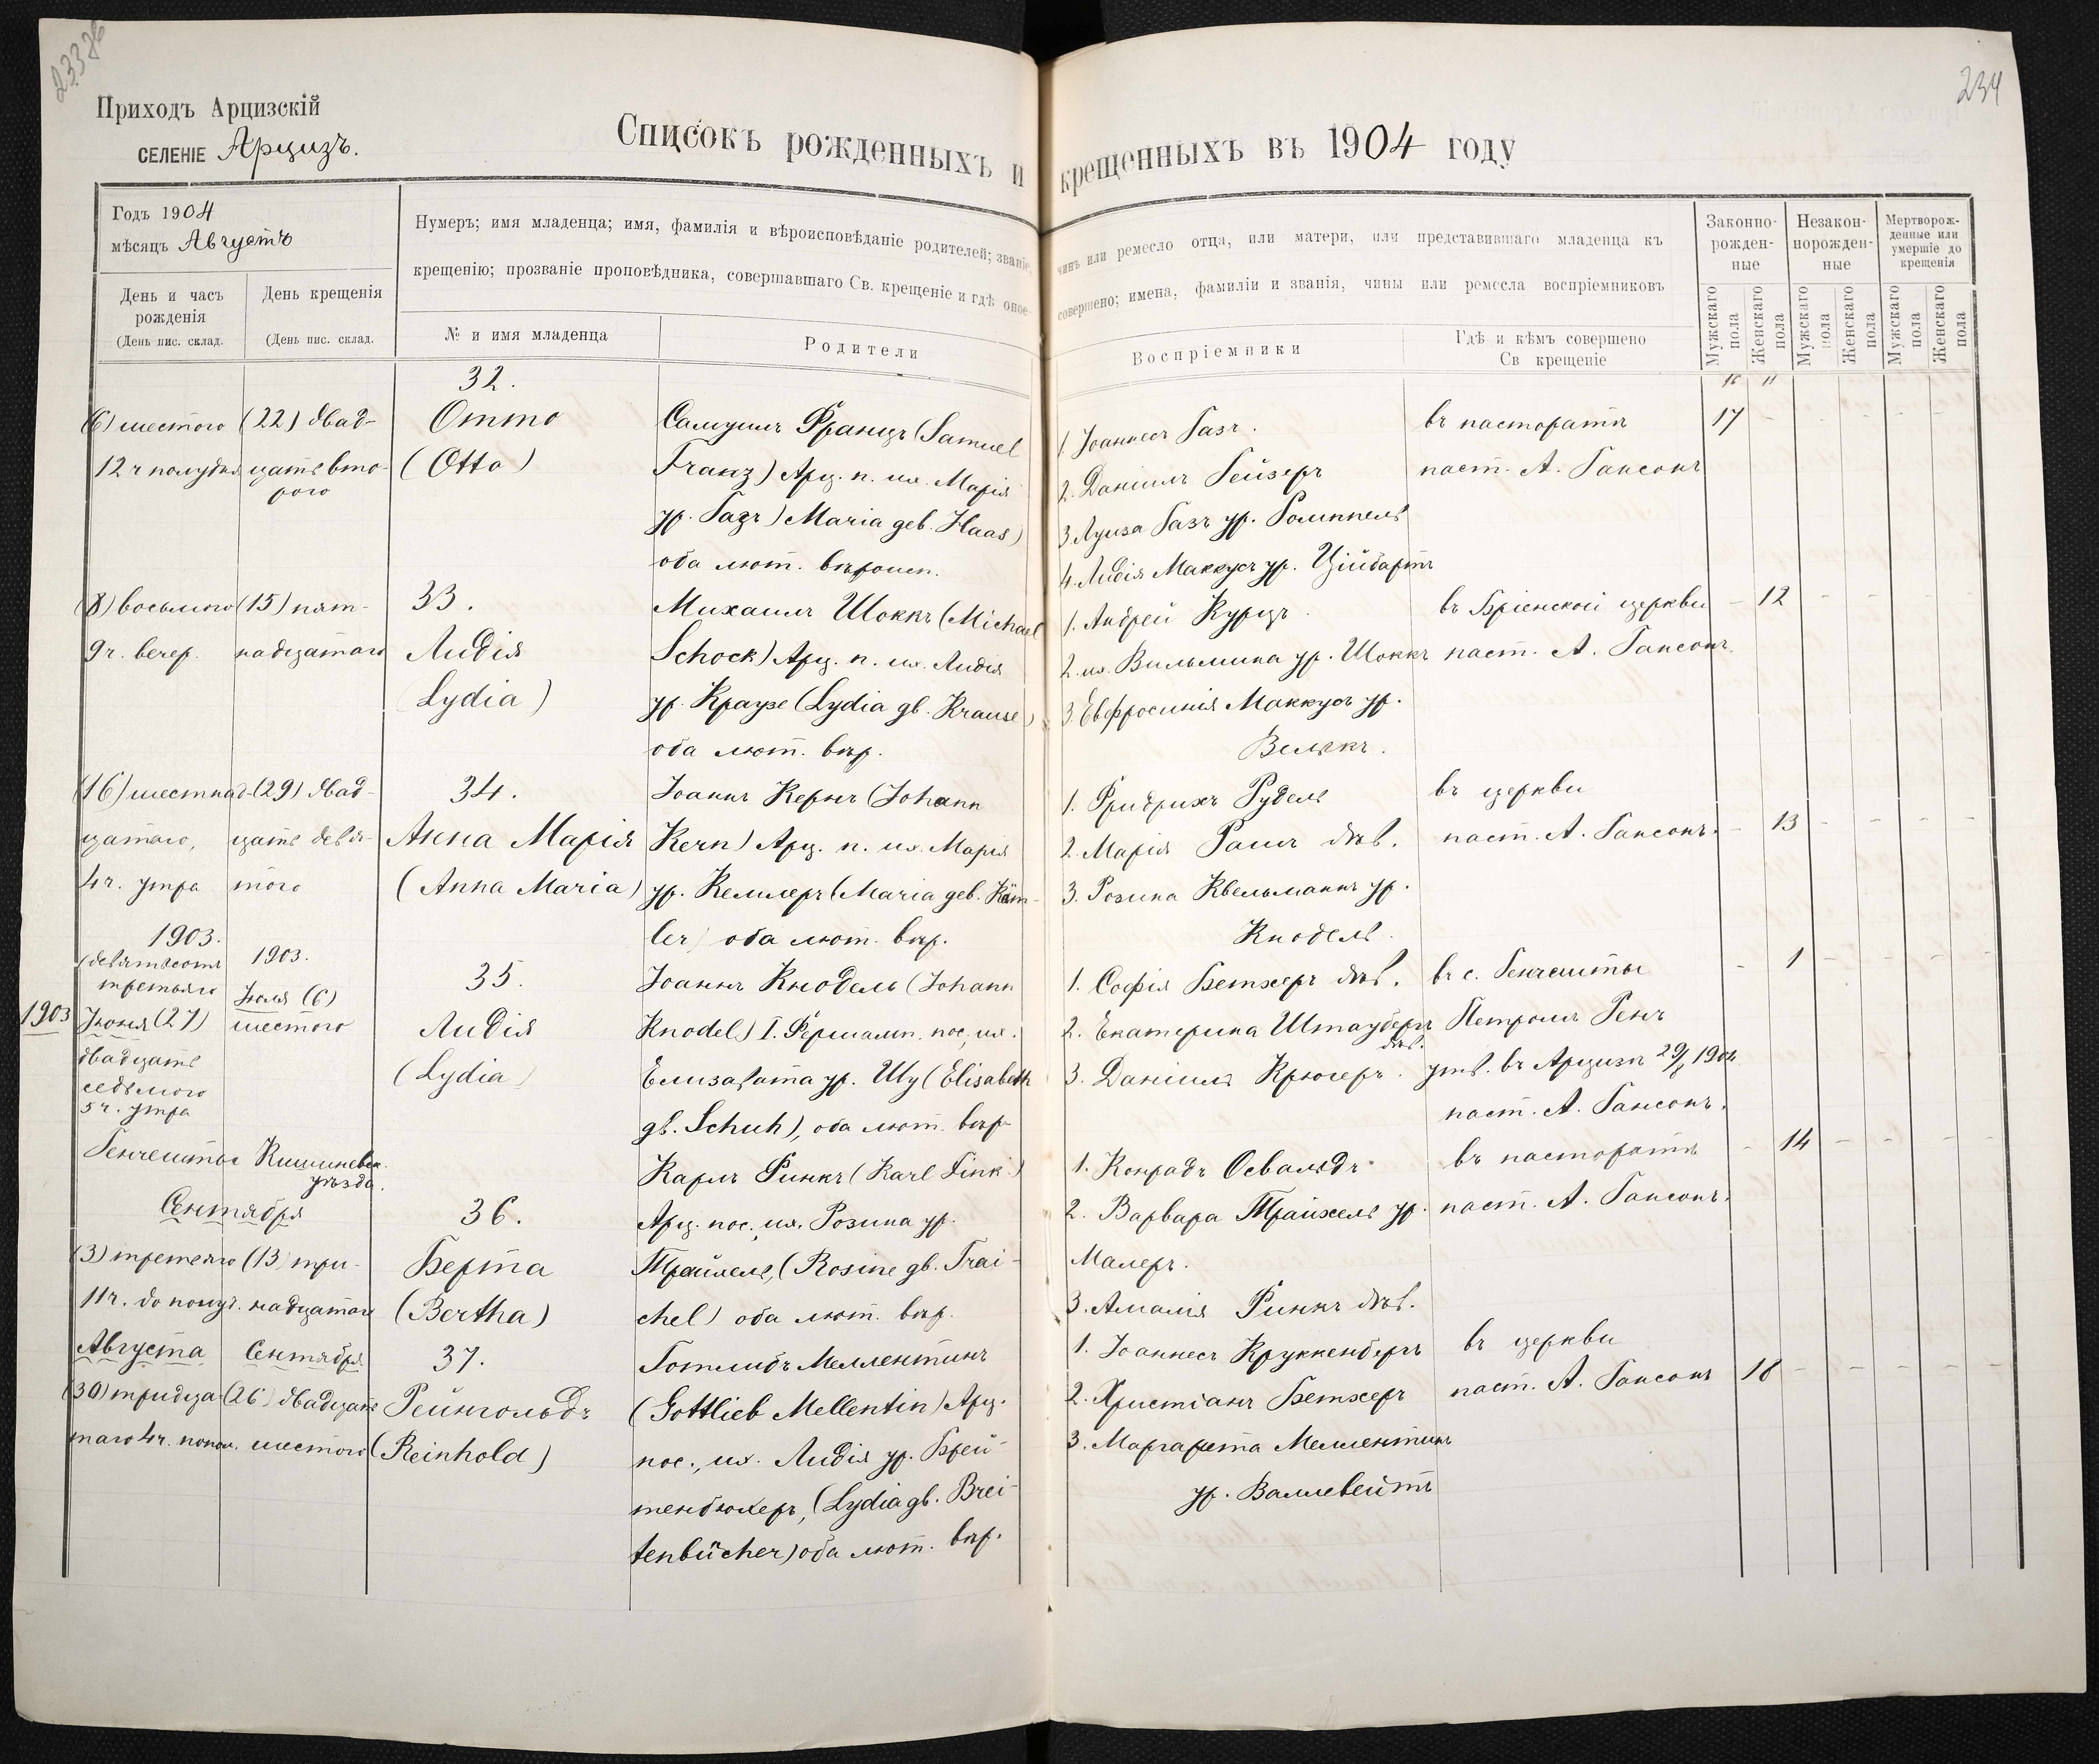 233 об
234
Приходъ Арцизскій
СЕЛЕНІЕ Арцизъ.
Списокъ рожденныхъ и крещенныхъ въ 1904 году
Годъ 1904
мѣсяцъ Августъ
День и часъ рожденія
(День пис. склад.
День крещенія
(День пис. склад.
Нумеръ; имя младенца; имя, фамилія и вѣроисповѣданіе родителей; званіе,
чинъ или ремесло отца, или матери, или представившаго младенца къ
крещенію; прозваніе проповѣдника, совершавшаго Св. крещеніе и гдѣ оное
совершено; имена, фамиліи и званія, чины или ремесла воспріемниковъ
№ и имя младенца
Родители
Воспріемники
Гдѣ и кѣмъ совершено
Св крещеніе
Законно-
рожден-
ные
Незакон-
норожден-
ные
Мертворож-
денные или
умершіе до
крещенія
Мужскаго пола
Женскаго пола
Мужскаго пола
Женскаго пола
Мужскаго пола
Женскаго пола
16 11
(6) шестого
12 ч полудня
(22) двад-
цать вто-
рого
32.
Отто
(Otto)
Самуилъ Францъ (Samuel
Franz) Арц. п. их. Марія
ур. Газъ) Maria geb. Haas)
оба лют. вѣроисп.
1. Іоаннесъ Газъ.
2. Даніилъ Гейзеръ
3. Луиза Газъ ур. Роммпель
4. Лидія Маккусъ ур. Ційбартъ
въ пасторатѣ
паст. А. Гансонъ
17 - - - - -
(8) восьмого
9 ч. вечер.
(15) пят-
надцатаго
33.
Лидія
Lydia)
Михаилъ Шоккъ (Michael
Schock) Арц. п. их. Лидія
ур. Краузе (Lydia gb. Krause)
оба лют. вѣр.
1. Андрей Курцъ.
2. их. Вильмина ур. Шоккъ
3. Евфросинія Маккусъ ур.
Велькъ.
въ Бріенской церкви
паст. А. Гансонъ.
- 12 - - - -
(16) шестнад-
цатаго,
4 ч. утра
(29) двад-
цать девя-
того
34.
Анна Марія
(Anna Maria)
Іоаннъ Кернъ (Johann
Kern) Арц. п. их. Марія
ур. Кемлеръ (Maria geb. Käm-
ler) оба лют. вѣр.
1. Фридрихъ Рудель
2. Марія Рашъ дѣв.
3. Розина Квельманнъ ур.
Кнодель.
въ церкви
паст. А. Гансонъ.
- 13 - - - -
1903
1903.
(девятьсотъ
третьяго
Іюня (27)
двадцать
седьмого
5 ч. утра
1903.
Іюля (6)
шестого
35.
Лидія
(Lydia)
Іоаннъ Кнодель (Johann
Knodel) I. Фершамп. пос., их.
Елизавата ур. Шу (Elisabeth
gb. Schuh), оба лют. вѣр.
1. Софія Бетхеръ дѣв.
2. Екатерина Штауберъ
дѣв.
3. Даніилъ Крюгеръ.
въ с. Генчешты
Петромъ Генъ
утв. въ Арцизѣ 29/ 1904
паст. А. Гансонъ.
- 1 - - - -
Генчешты Кишиневск.
уѣзда.
Сентября
(3) третяго
11 ч. до полуд.
(13) три-
надцатаго
36.
Берта
(Bertha)
Карлъ Финкъ (Karl Fink)
Арц. пос., их. Розина ур.
Трайхель, (Rosine gb. Trai-
chel) оба лют. вѣр.
1. Конрадъ Освальдъ
2. Варвара Трайхель ур.
Малеръ.
3. Амалія Финкъ дѣв.
въ пасторатѣ
паст. А. Гансонъ.
- 14 - - - -
Августа
(30) тридца-
таго 4 ч. попол.
Сентября
(26) двадцать
шестого
37.
Рейнгольдъ
(Reinhold)
Готлибъ Меллентинъ
(Gottlieb Mellentin) Арц.
пос., их. Лидія ур. Брей-
тенбюхеръ, (Lydia gb. Brei-
tenbücher) оба лют. вѣр.
1. Іоаннесъ Круккенбергъ
2. Христіанъ Бетхеръ
3. Маргарета Меллентинъ
ур. Валлевейтъ
въ церкви
паст. А. Гансонъ
18 - - - - -